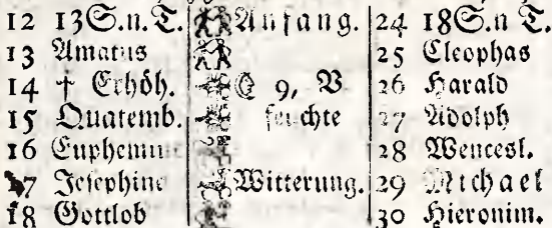 12 13 S.n.T. Anfang. 24 18 S.n T.
13 Amatus 25 Cleophas
14 † Erhöh. 9, V 26 Harald
15 Quatemb. feuchte 27 Adolph
16 28 Wencesl.
17 Josephine Witterung. 29 Michael
18 Gottlob 30 Hieronim.